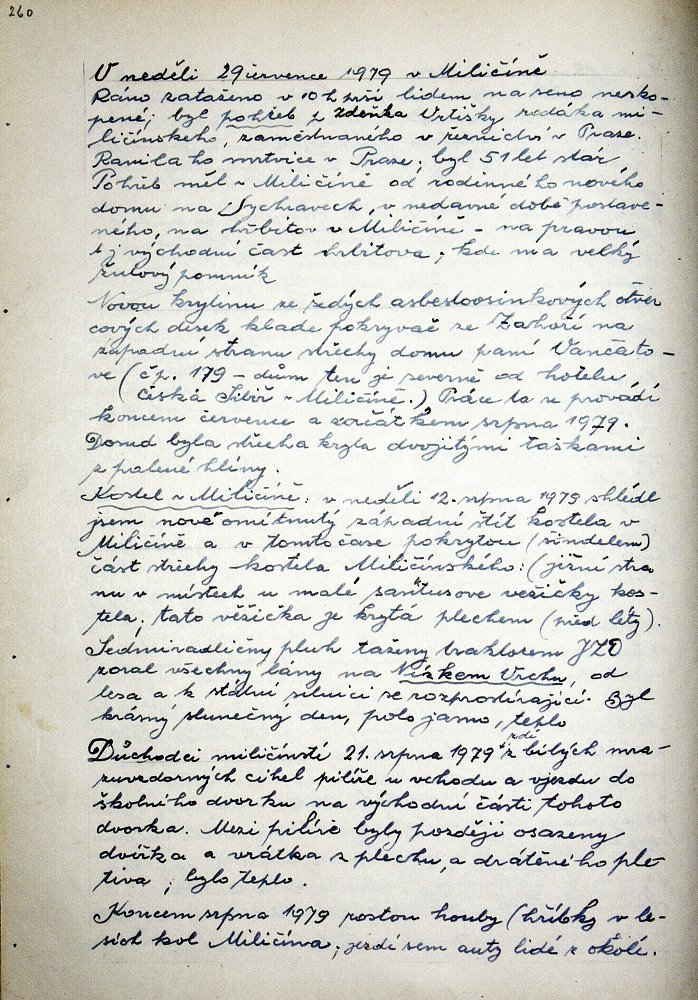 260
V neděli 29 července 1979 v Miličíně
Ráno zataženo v 10 h prší lidem na seno nesko-
pené; byl pohřeb p Zdeňka Vrtišky rodáka mi-
ličínského, zaměstnaného v řeznictví v Praze.
Ranila ho mrtvice v Praze; byl 51 let stár
Pohřeb měl v Miličíně od rodinného nového
domu na Sychravech, v nedavné době postave-
ného, na hřbitov v Miličíně - na pravou
t j východní část hřbitova; kde ma velký
žulový pomník
Novou krytinu ze šedých asbestoosinkových čtver
cových desek klade pokryvač ze Zahoří na
západní stranu střechy domu paní Vančato-
ve (čp. 179 - dům ten je severně od hotelu
Česká Sibiř v Miličíně.) Práce ta se provádí
koncem července a začátkem srpna 1979.
Dosud byla střecha kryta dvojitými taškami
z palené hlíny.
Kostel v Miličíně: v neděli 12. srpna 1979 shlédl
jsem nově omítnutý západní štít kostela v
Miličíně a v tomto čase pokrytou (šindelem)
část střechy kostela Miličínského: (jižní stra
nu v místech u malé sanktusove vežičky kos-
tela; tato věžička je krytá plechem (před léty).
Sedmiradličný pluh tažený traktorem JZD
zoral všechny lány na Nízkem Vrchu, od
lesa a k státní silnici se rozprostírající. Byl
krásný slunečný den, polojasno, teplo
zdí
Důchodci miličínstí 21. srpna 1979 z bílých mra-
zuvzdorných cihel pilíře u vchodu a vjezdu do
školního dvorku na východní části tohoto
dvorka. Mezi pilíře byly později osazeny
dvířka a vrátka z plechu, a drátěného ple-
tiva; bylo teplo.
Koncem srpna 1979 rostou houby (hříbky v le-
sích kol Miličína; jezdí sem auty lidé z okolí.